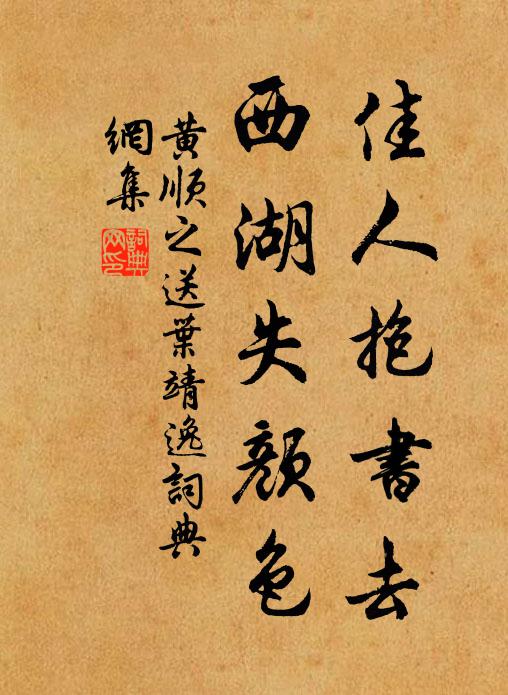 佳人抱書去
西湖失顔色
黄順之送葉靖逸詞典
網集
詞典
網印